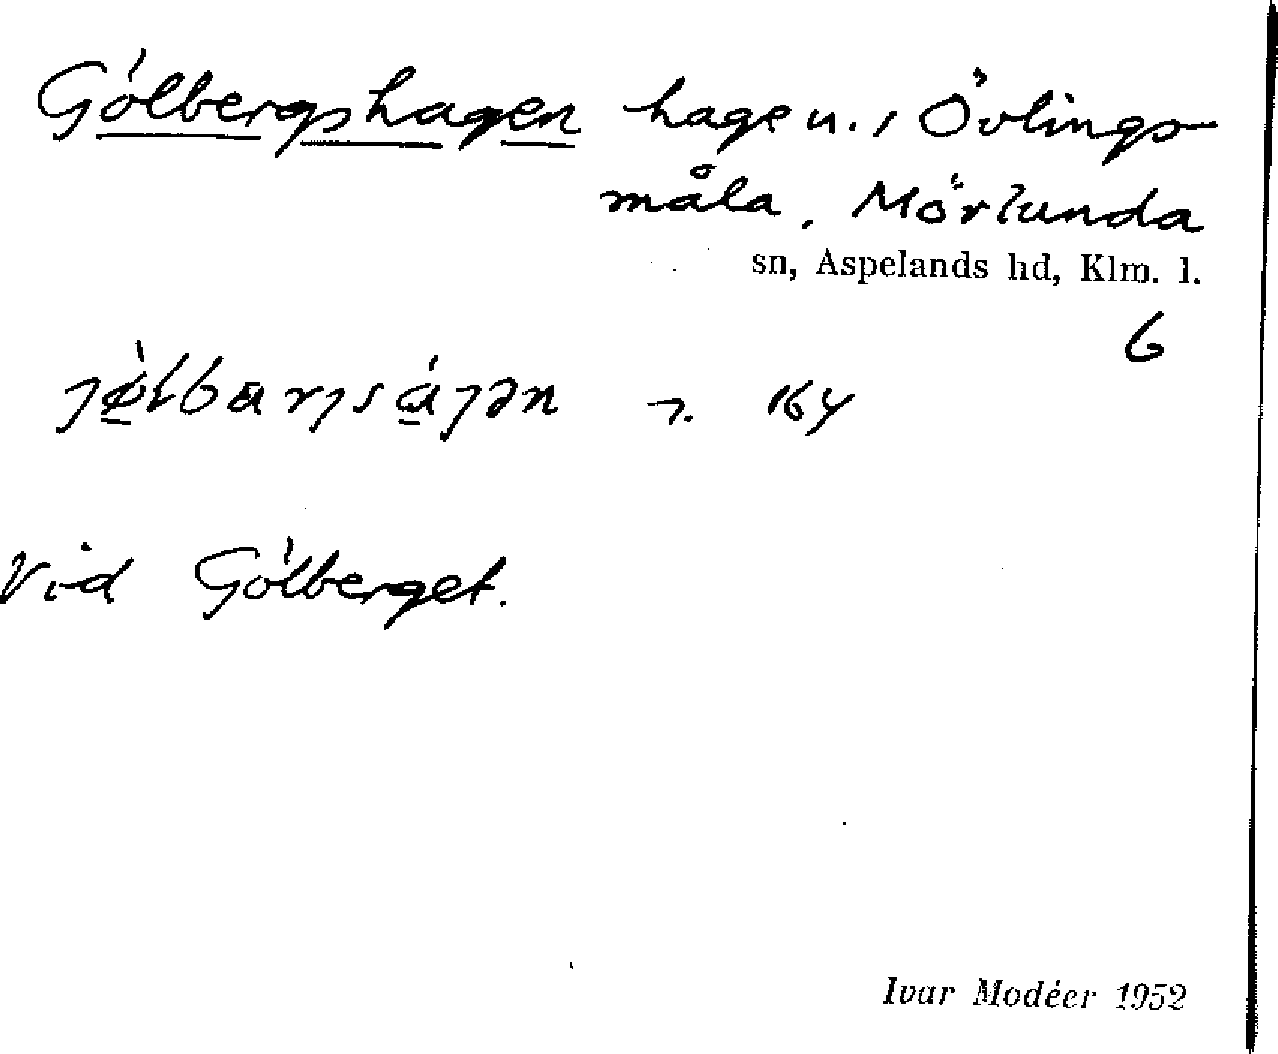 Gölbergshagen hage u. i Övlings-
måla, Mörlunda
sn, Aspelands hd, Klm. l.
6
164
Vid Gölberget.
Ivar Modéer 1952